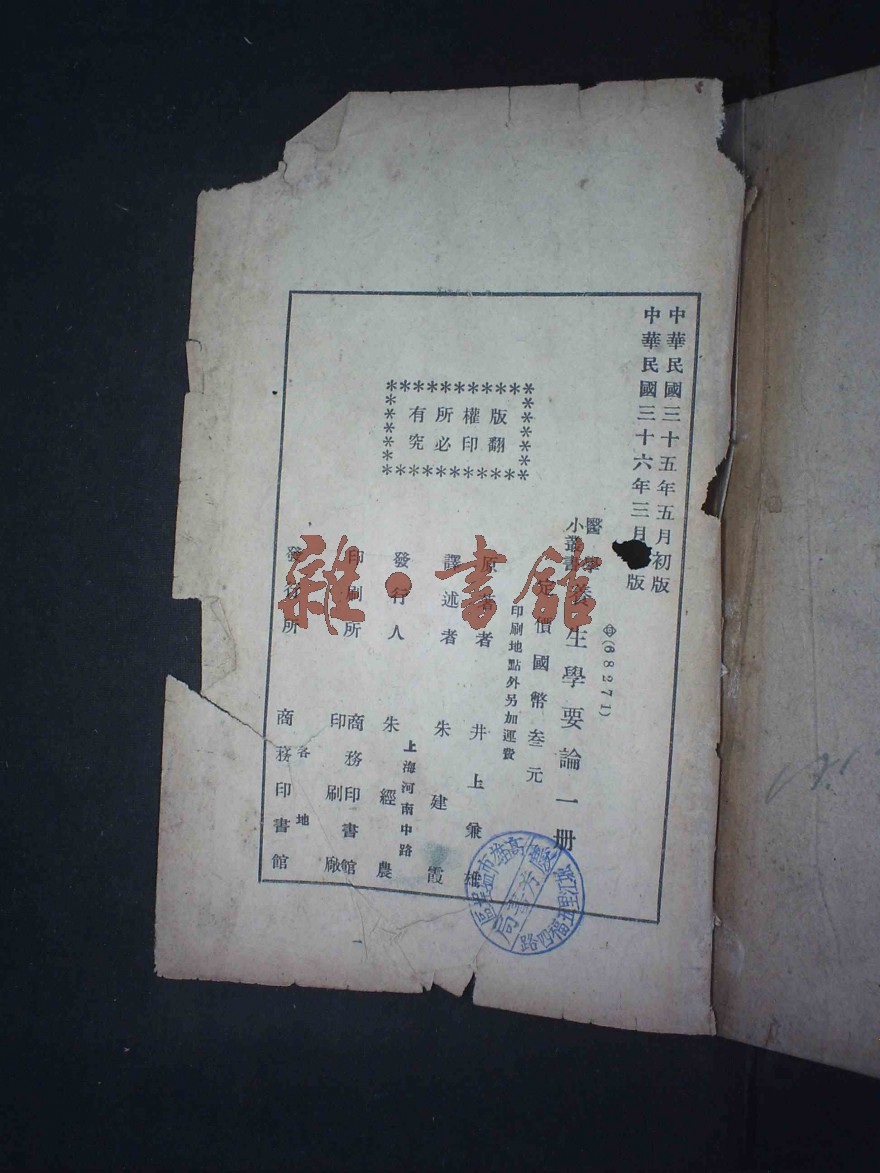 中華民國三十五年五月初版
中華民國三十六年三月版
(68271)
醫學
小叢書
養生學要論一册
定價國幣叁元
印刷地點外另加運費
版權所有
翻印必究
原著者 井上兼雄
譯述者 朱建霞
上海河南中路
發行人 朱經農
印刷所 商務印書館
印刷廠
各地
發行所 商務印書館
雜·書館